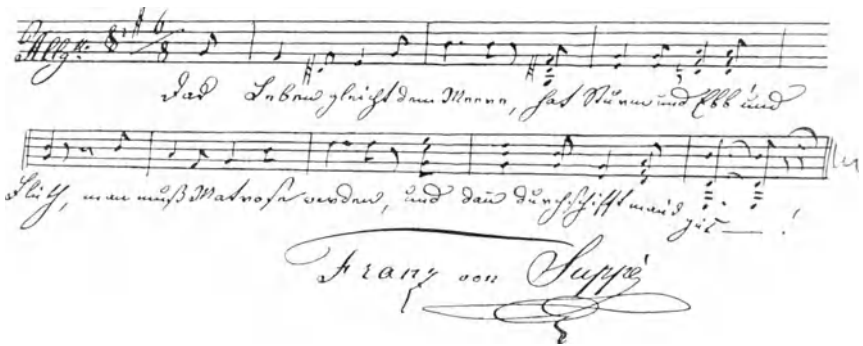 Allgtto: 6/8
Das Leben gleicht dem Meere, hat Sturm und Ebb' und
Fluth, man muß Matrose werden, und dan̄ durchschifft man's
gut — !
Franz von Suppé